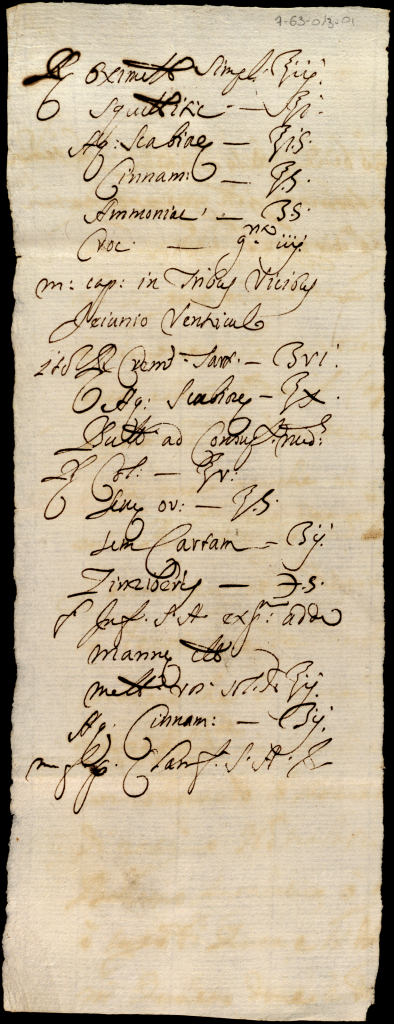 9-63-013-01
℞ oximell: Simpl: ℥iij.
Squillitic — ℥j.
Aq: Scabiae — ℥iS.
Cinnam: — ℥S.
Ammoniac' — ʒS.
Croc. — gna iiij.
m: cap: in Tribus Vicibus
Jeiunio Ventriculo
℞ Cremr. Tart. — ʒvi.
Aq: Scabiae — ℥x.
Bull ad Consupt. med:
℞ Col: — ℥v.
Sene or: — ℥S.
Sem Cartam — ʒij.
Zinziberis — ℈.S.
f Inf. S. A exp: adde
manne
mell: ros. sol. ℥ij.
Aq. Cinnam: — ʒij.
Clarif. S. A. &